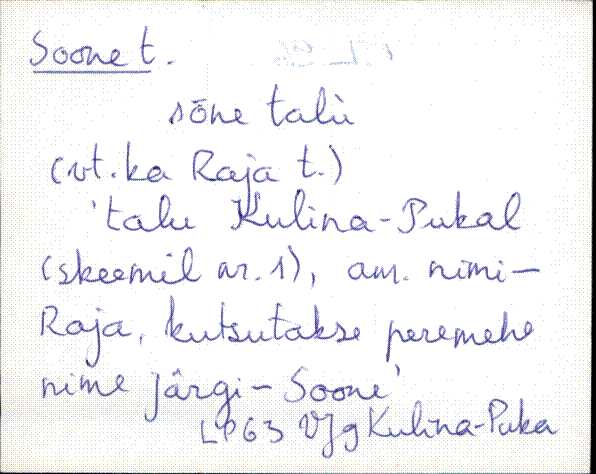 Soone t.
sōne talù
(vt. ka Raja t.)
'talu Kulina-Pukal
(skeemil nr. 1), am. nimi –
Raja, kutsutakse peremehe
nime järgi – Soone'
LP63 VJg Kulina-Puka